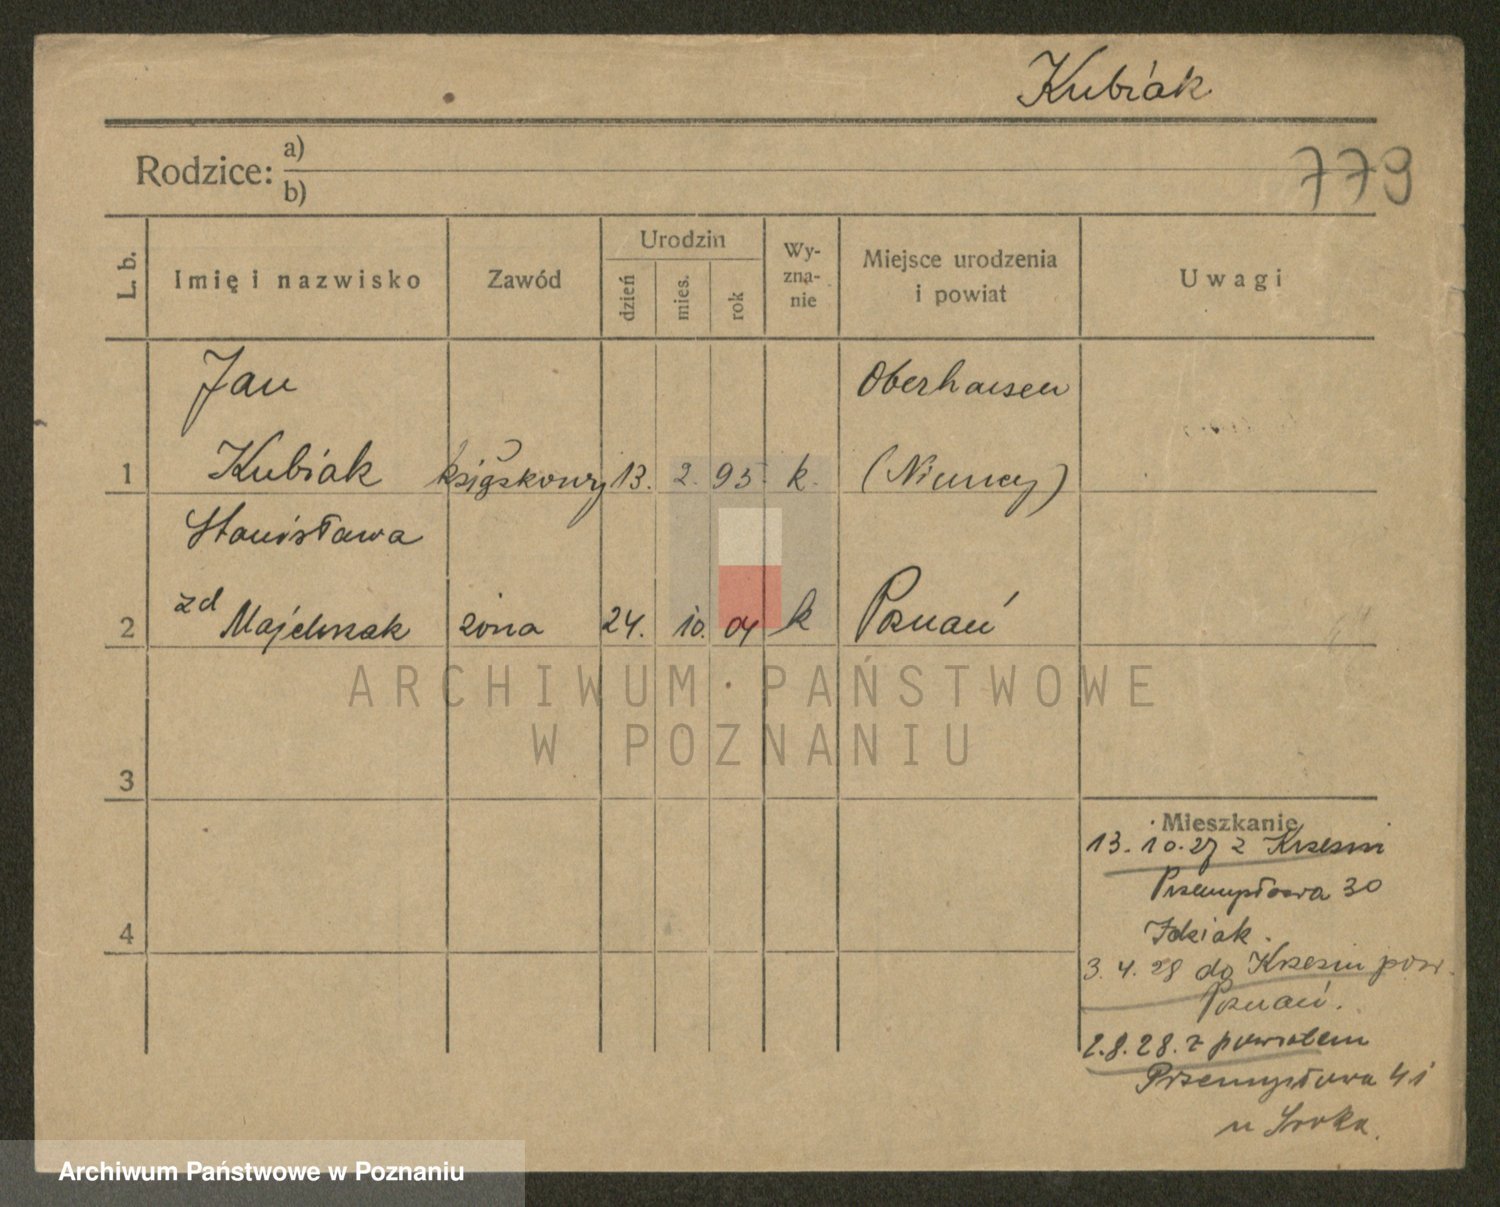 Kubiak
779
Rodzice: a)
b)
L. b.
Imię i nazwisko
Zawód
Urodzin
dzień
mies.
rok
Wy-
zna-
nie
Miejsce urodzenia
i powiat
Uwagi
Jan
Oberhausen
1 Kubiak książkowy 13. 2. 95. k. (Niemcy)
Stanisława
2 zd Majchrzak żona 24. 10. 04 k Poznań
ARCHIWUM PAŃSTWOWE
W POZNANIU
3
Mieszkanie
13.10.27 z Krzesin
Przemysłowa 30
Idziak.
4
3.4.28 do Krzesin pow.
Poznań.
2.8.28. z powrotem
Przemysłowa 41
u Sroka.
Archiwum Państwowe w Poznaniu